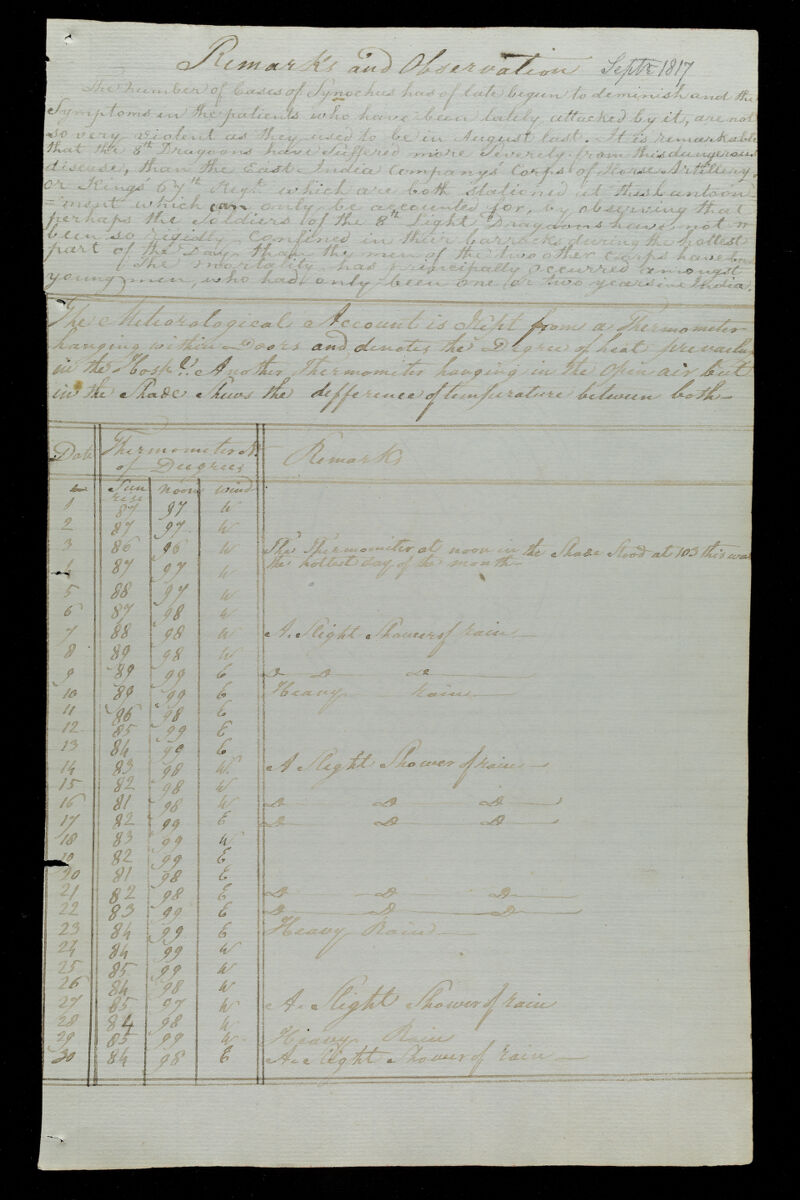 Remarks and Observation Septr 1817
The number of Cases of Synochus has of late begun to deminish and the
Symptoms in the patients who have been lately attacked by it, are not
so very violent as they used to be in August last. It is remarkable
that the 8th Dragoons have Suffered more Severely from this dangerous
disease, than the East India Companys Corps of Horse Artillery,
or Kings 67th Regt which are both stationed at this Cantoon
=ment which can only be accounted for, by observing that
perhaps the Soldiers of the 8th Light Dragoons have not
been so rigidly confined in their barracks during the hottest
part of the Day, than the men of the two other Corps have
The mortality has principally occurred amongst
young men, who had only been one or two years in India.
The Meteorological Account is Kept from a Thermometer
hanging within Doors and denotes the Degree of heat prevailing
in the Hospl. Another Thermometer hanging in the open air but
in the Shade Shews the defference of temperature between both—
Date Thermometer No. of Degrees Remarks
Sun rise noon wind
1 87 97 W
2 87 97 W
3 86 96 W The Thermometer at noon in the Shade Stood at 103 this was
the hottest day of the month
4 87 97 W
5 88 97 W
6 87 98 W
7 88 98 W A Slight Shower of rain —
8 89 98 W
9 89 99 E D D D
10 89 99 E Heavy rain
11 86 98 E
12 85 99 E
13 84 99 E
14 83 98 W A Slight Shower of rain —
15 82 98 W
16 81 98 W D D D
17 82 99 E D D D
18 83 99 W
19 82 99 E
20 81 98 E
21 82 98 E D D D
22 83 99 E D D D
23 84 99 E Heavy Rain —
24 84 99 W
25 85 99 W
26 84 98 W
27 85 97 W A Slight Shower of rain
28 84 98 W
29 85 99 W Heavy Rain
30 84 98 E A Slight Shower of rain —